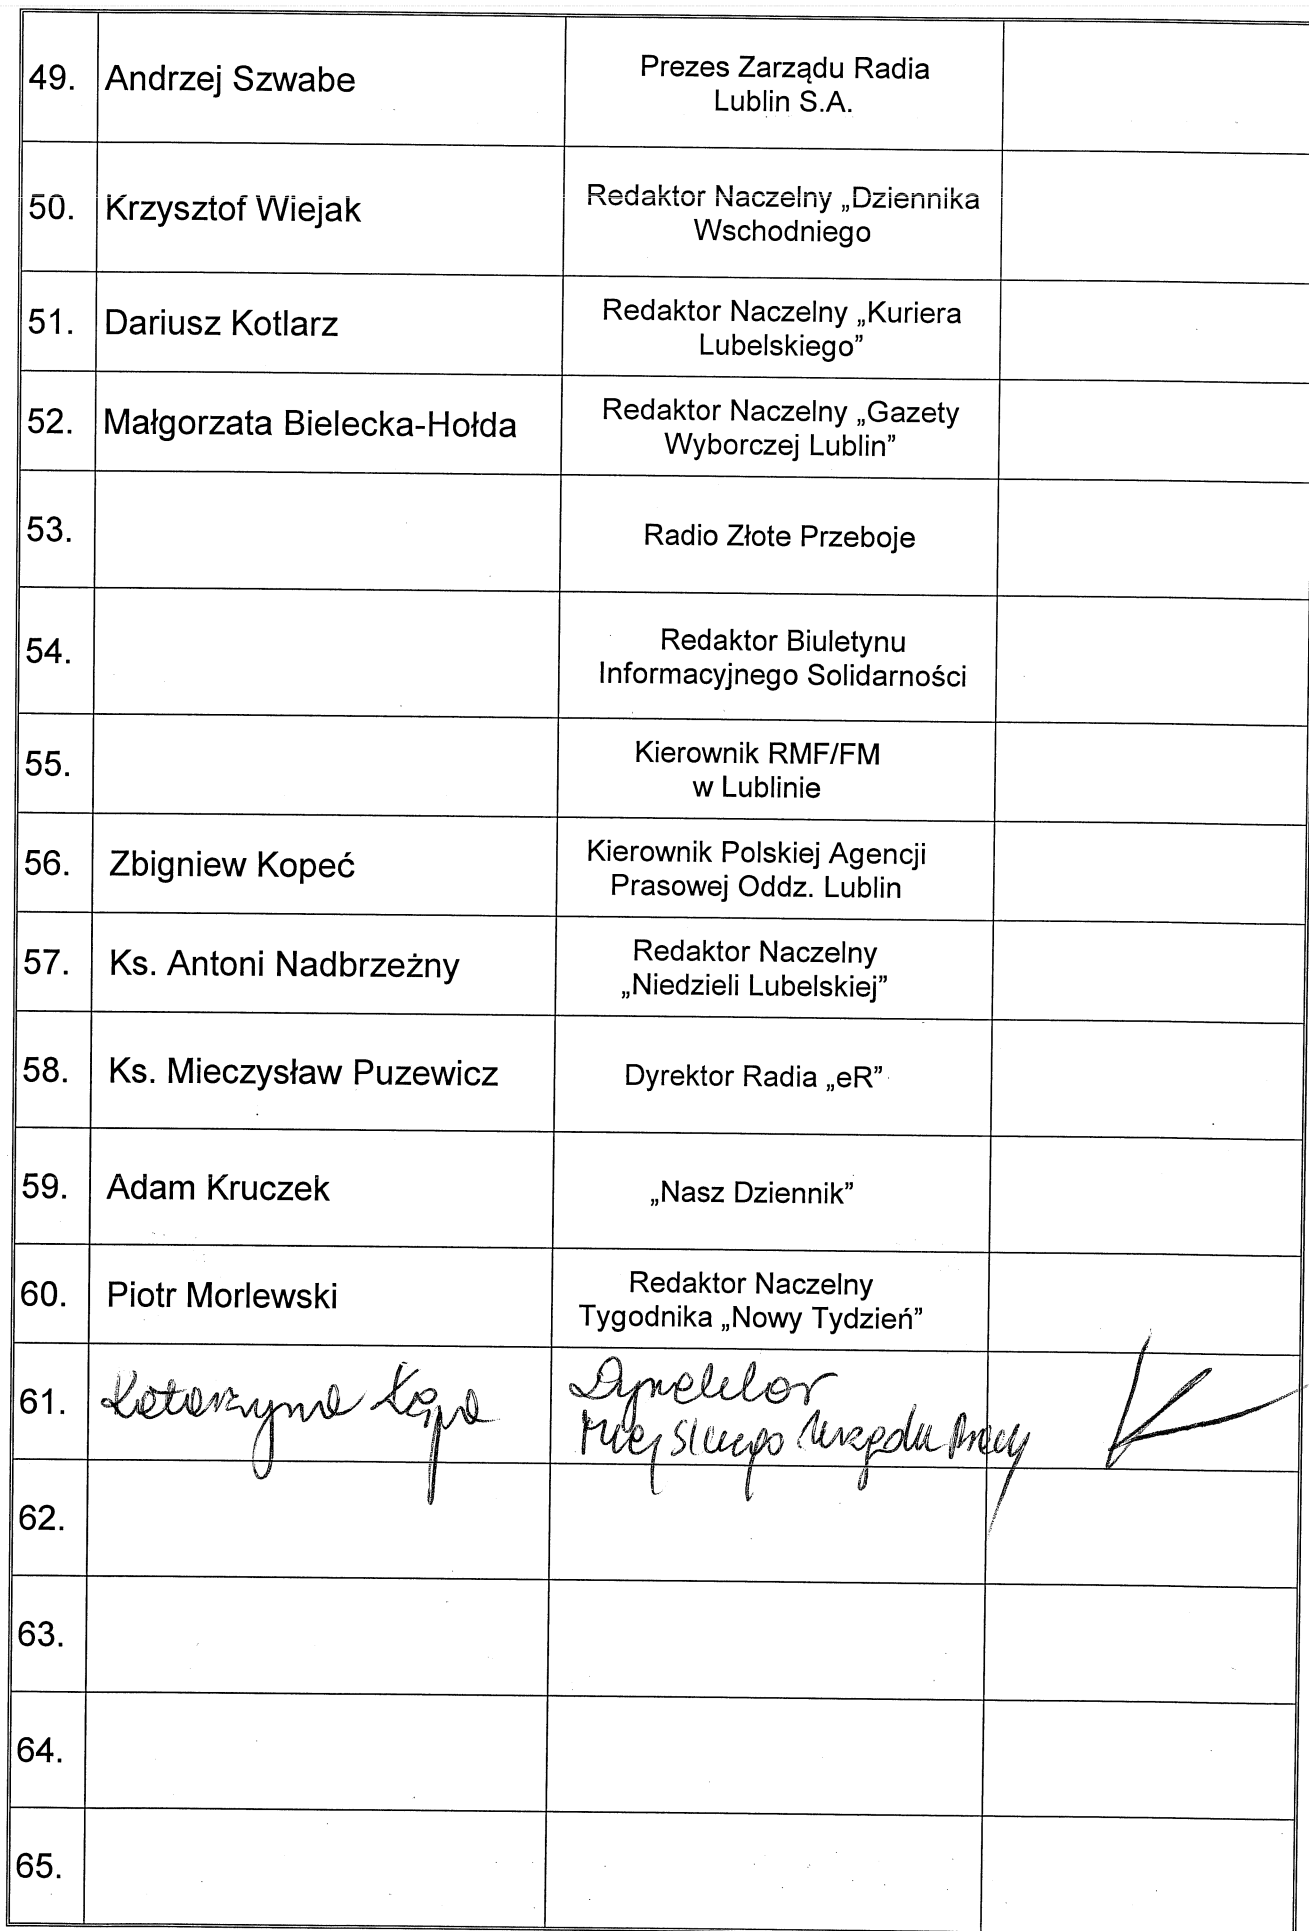 49. Andrzej Szwabe
Prezes Zarządu Radia
Lublin S.A.
50. Krzysztof Wiejak
Redaktor Naczelny „Dziennika
Wschodniego
51. Dariusz Kotlarz
Redaktor Naczelny „Kuriera
Lubelskiego”
52. Małgorzata Bielecka-Hołda
Redaktor Naczelny „Gazety
Wyborczej Lublin”
53.
Radio Złote Przeboje
54.
Redaktor Biuletynu
Informacyjnego Solidarności
55.
Kierownik RMF/FM
w Lublinie
56. Zbigniew Kopeć
Kierownik Polskiej Agencji
Prasowej Oddz. Lublin
57. Ks. Antoni Nadbrzeżny
Redaktor Naczelny
„Niedzieli Lubelskiej”
58. Ks. Mieczysław Puzewicz
Dyrektor Radia „eR”
59. Adam Kruczek
„Nasz Dziennik”
60. Piotr Morlewski
Redaktor Naczelny
Tygodnika „Nowy Tydzień”
61. Katarzyna Kępa
Dyrektor
Miejskiego Urzędu Pracy
62.
63.
64.
65.